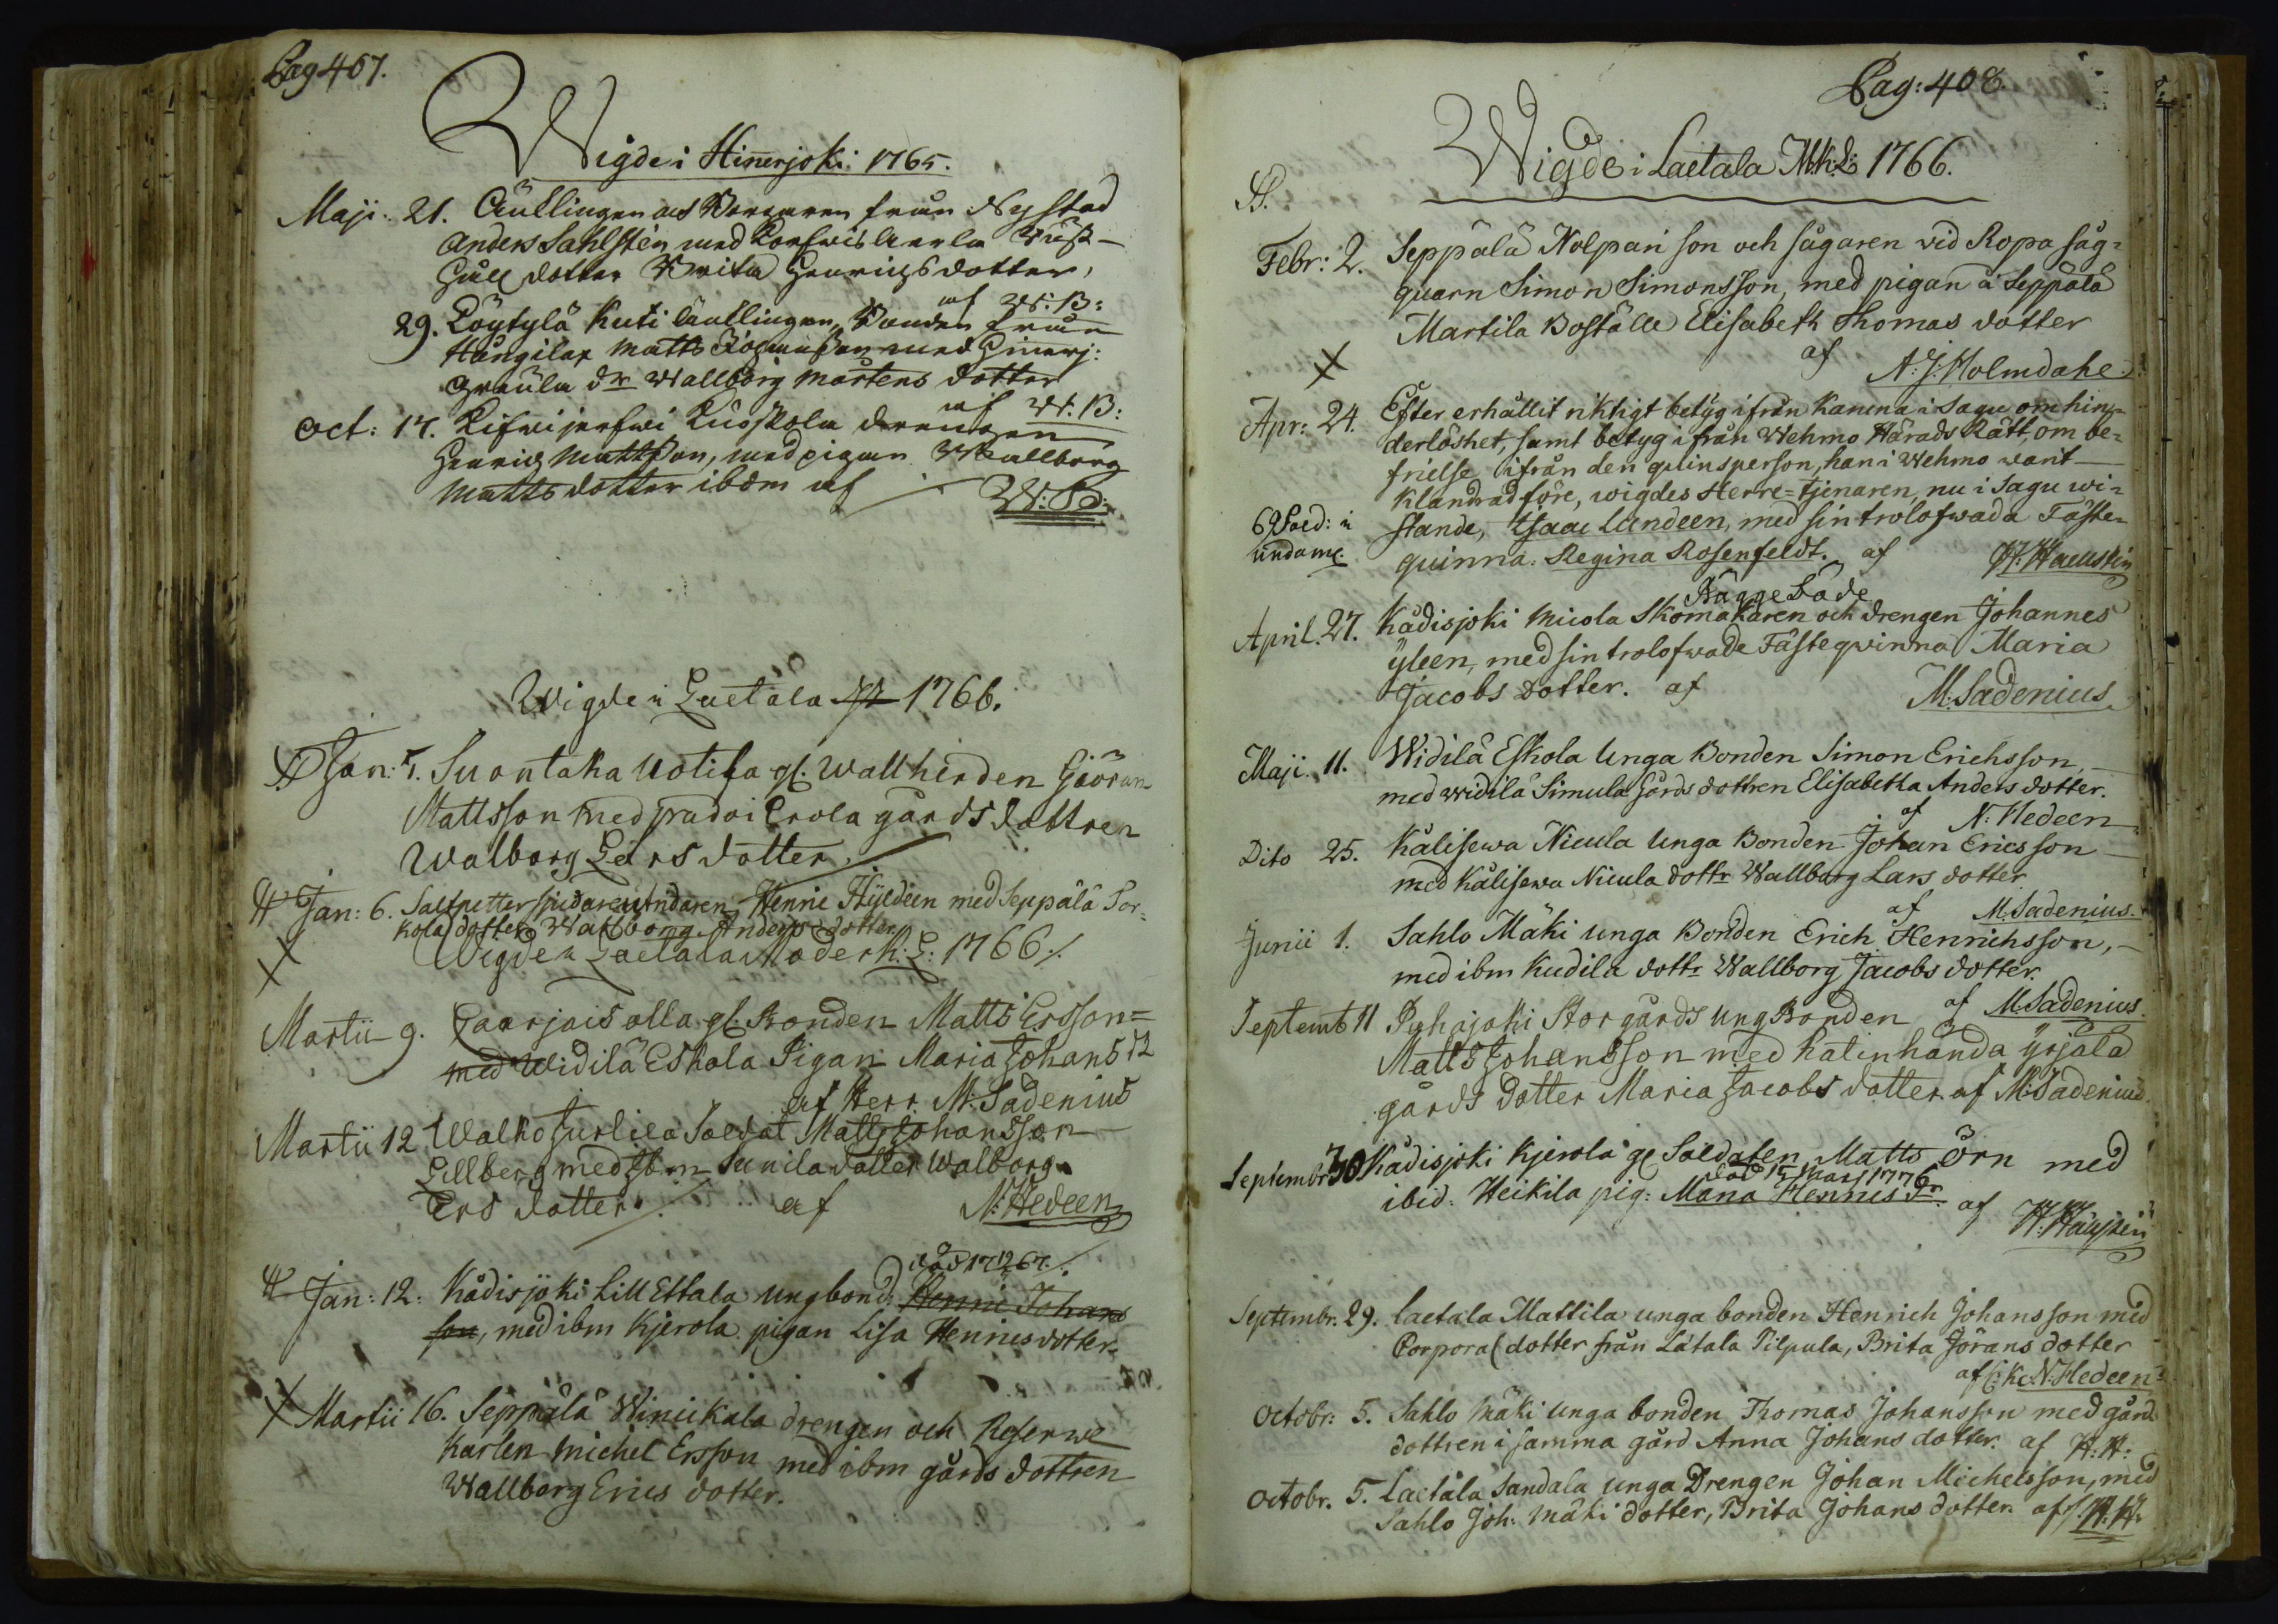 Pag 407.
Wigde i Hinnerjoki 1765.
Maji. 21. Änklingen Borgaren från Nystad
Anders Sahlstén med
dotter Brita Henrichsdotter,
af W:B:
29. Löytylä Kuti Änklingen, Bonden från
Hångilax Matts med Hinnerj:
dr Wallborg Mårtens dotter
af W:B:
Oct: 17. drengen
Henric Mattsson, med pigan Wallborg
Matts dotter ibdm af W:B:
Wigde i Laetala 1766.
Jan: 5. Suontaka Uotila gl. Wallherden Giöran
Mattsson med Erola gårds dottren
Walborg Lars dotter.
Jan: 6. Saltpetter Henric Flyideen med Seppälä
kola dotter Wallborg Anders dotter
Wigde i Laetala Moderk: L: 1766
Martii 9. gl. Bonden Matts Ersson
med Widilä Eskola Pigan Maria Johans dr
af Herr M. Sadenius
Martii 12 Walko Soldat Matts Johansson
Lillberg med ibm Sunila dotter Walborg
Ers dotter. af N: Hedeen
död 17 12/2 67.
Jan: 12. Kådisjoki Lill Ettala ungbond: Henric Johans
son, med ibm Kjerola pigan Lisa Henricsdotter.
Martii 16. Seppälä Winickala drengen och Reserwe
Karlen Michel Ersson med ibm gårds dottren
Wallborg Erics dotter.
Pag: 408.
Wigde i Laetala M:k:L: 1766.
S.
Febr: 2. Seppälä Nolpari son och sågaren vid Ropa såg=
quarn Simon Simonsson, med pigan å Seppälä
Martila Boställe Elisabeth Thomas dotter
af A. J. Holmdahl
Apr: 24. Efter erhållit riktigt betyg ifrån Kamna i Sagu om hin=
derlöshet, samt betyg ifrån Wehmo Härads Rätt, om be=
frielse ifrån den quinsperson, han i Wehmo warit
klandrad före, wigdes Herre=tjenaren, nu i Sagu wi=
stande, Isaac Lundeen, med sin trolofwada Fäste=
quinna. Regina Rosenfeldt. af H. Hacuskin
Bägge Döde
April. 27. Kådisjoki Micola Skomakaren och drengen Johannes
Yleen, med sin trolofwade Fästeqwinna Maria
Jacobs dotter. af M. Sadenius
Maji. 11. Widilä Eskola Unga Bonden Simon Erichsson,
med Widilä Simula Gårds dottren Elisabetha Anders dotter.
af N: Hedeen
Dito 25. Kalisewa Nicula Unga Bonden Johan Ericsson
med Kalisewa Nicula dottr Wallborg Lars dotter
af M. Sadenius.
Junii 1. Sahlo Mäki unga Bonden Erich Henrichsson,
med ibm Kudila dottr Wallborg Jacobs dotter.
af M. Sadenius.
Septemb 11 Pyhäjoki Storgårds Ung Bonden
Matts Johansson med Katinhända Yrjälä
gårds dotter Maria Jacobs dotter. af M. Sadenius.
Septembr 30 Kådisjoki Kjerola gl Soldaten Matts Örn med
död 15 Mars 1776
ibid: Heikila pig: Maria Henrics dr. af
Septembr. 29. Laetala Mattila unga bonden Henrich Johansson med
Corporal dotter från Låtala Pilpula, Brita Jörans dotter
af C: Kc. N: Hedeen
Octobr: 5. Sahlo Mäki unga bonden Thomas Johansson med gård
dottren i samma gård Anna Johans dotter. af H: H:
Octobr. 5. Laetala Sandala unga Drengen Johan Michelsson, med
Sahlo Joh: Mäki dotter, Brita Johans dotter. af H. H.